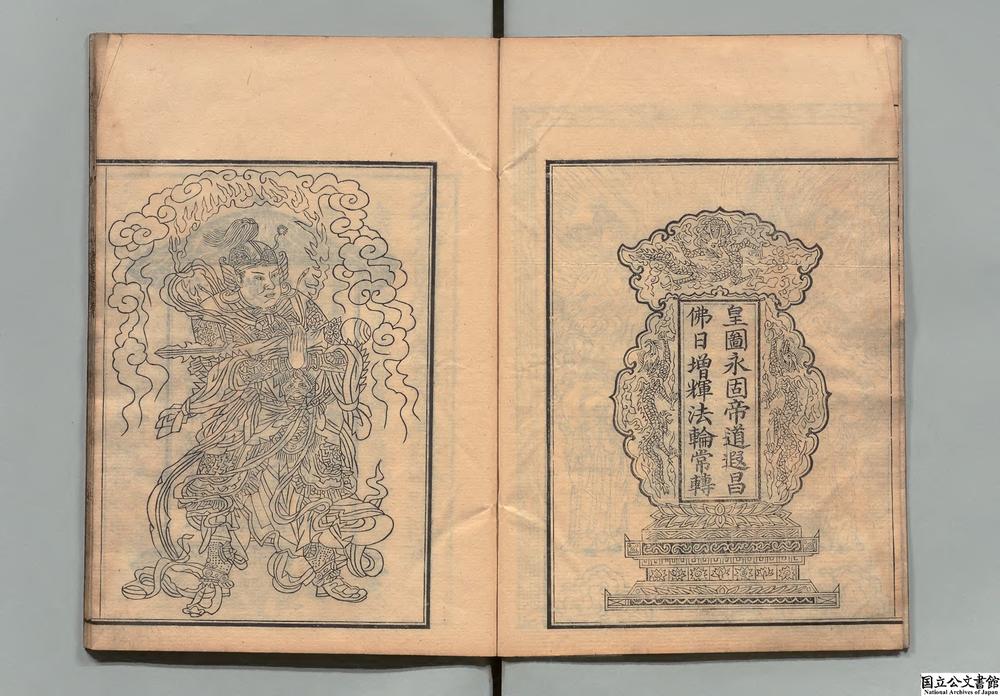 皇圖永固帝道遐昌
佛日增輝法輪常轉
国立公文書館
National Archives of Japan